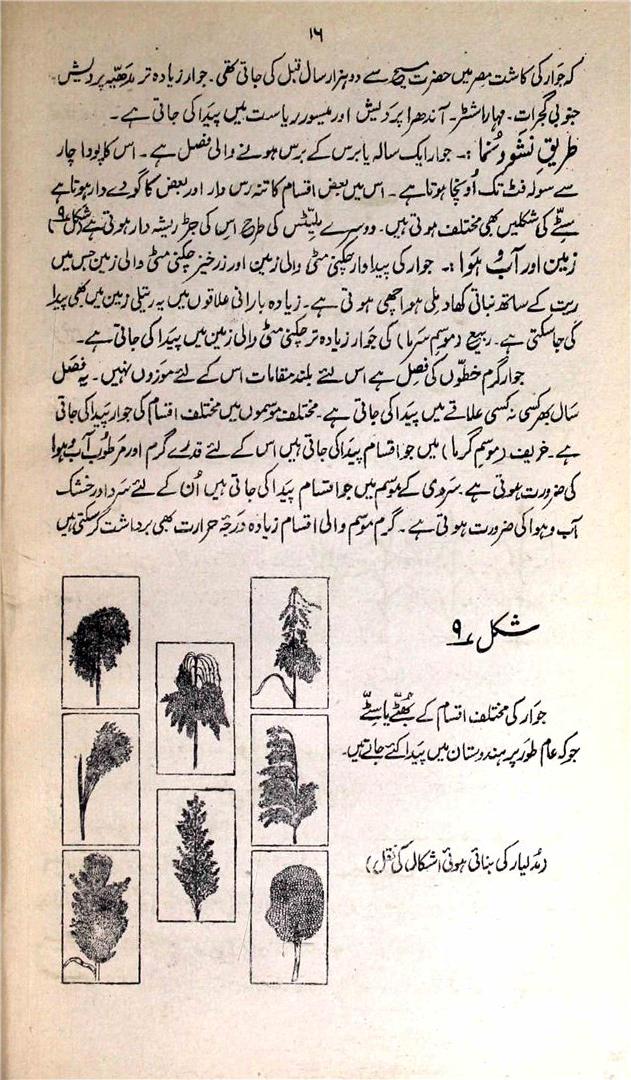 ۱۶
کہ جوار کی کاشت مصر میں حضرت مسیح سے دو ہزار سال قبل کی جاتی تھی۔ جوار زیادہ تر مدھیہ پردیش۔
جنوبی گجرات۔ مہاراشٹر۔ آندھرا پردیش اور میسور ریاست میں پیدا کی جاتی ہے۔
طریقِ نشو و نما :۔ جوار ایک سالہ یا برس کے برس ہونے والی فصل ہے۔ اس کا پودا چار
سے سولہ فٹ تک اُونچا ہوتا ہے۔ اس میں بعض اقسام کا تنہ رس دار اور بعض کا گودے دار ہوتا ہے
سٹے کی شکلیں بھی مختلف ہوتی ہیں۔ دوسرے ملیٹس کی طرح اس کی جڑ ریشہ دار ہوتی ہے (شکل ۹)
زمین اور آب و ہوا :۔ جوار کی پیداوار چکنی مٹی والی زمین اور زرخیز چکنی مٹی والی زمین جس میں
ریت کے ساتھ نباتی کھاد ملی ہو اچھی ہوتی ہے۔ زیادہ بارانی علاقوں میں یہ رتیلی زمین میں بھی پیدا
کی جاسکتی ہے۔ ربیع (موسمِ سرما) کی جوار زیادہ تر چکنی مٹی والی زمین میں پیدا کی جاتی ہے۔
جوار گرم خطّوں کی فصل ہے اس لئے بلند مقامات اس کے لئے موزوں نہیں۔ یہ فصل
سال بھر کسی نہ کسی علاقے میں پیدا کی جاتی ہے۔ مختلف موسموں میں مختلف اقسام کی جوار پیدا کی جاتی
ہے۔ خریف (موسمِ گرما) میں جو اقسام پیدا کی جاتی ہیں اس کے لئے قدرے گرم اور مرطوب آب و ہوا
کی ضرورت ہوتی ہے۔ سردی کے موسم میں جو اقسام پیدا کی جاتی ہیں اُن کے لئے سرد اور خشک
آب و ہوا کی ضرورت ہوتی ہے۔ گرم موسم والی اقسام زیادہ درجۂ حرارت بھی برداشت کرسکتی ہیں
شکل ۹
جوار کی مختلف اقسام کے بھُٹے یا سٹے
جو کہ عام طور پر ہندوستان میں پیدا کئے جاتے ہیں۔
(مُدلیار کی بنائی ہوئی اشکال کی نقل)